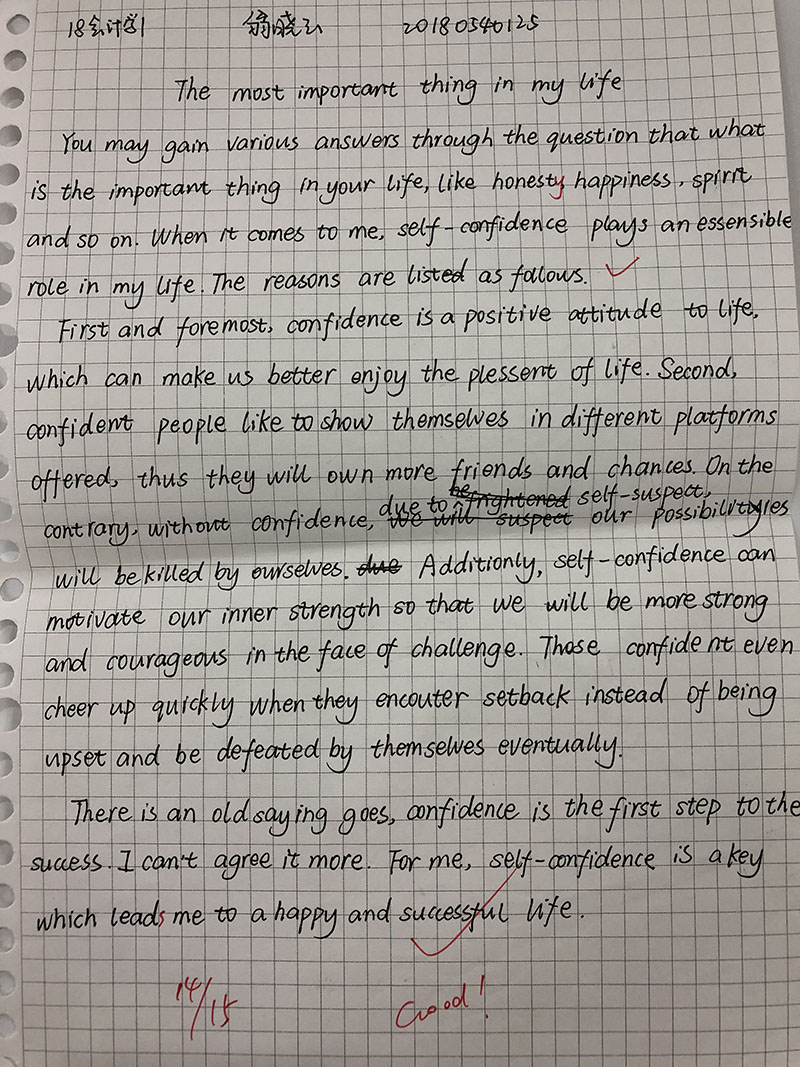 18会计学1 翁晓云 20180540125
The most important thing in my life
You may gain various answers through the question that what
is the important thing in your life, like honesty happiness, spirit
and so on. When it comes to me, self-confidence plays an essensible
role in my life. The reasons are listed as fallows.
First and foremost, confidence is a positive attitude to life,
which can make us better enjoy the plessent of life. Second,
confident people like to show themselves in different platforms
offered, thus they will own more friends and chances. On the
be frightened self-suspect,
contrary, without confidence, due to we will suspect our possibilityies
will be killed by ourselves. due Additionly, self-confidence can
motivate our inner strength so that we will be more strong
and courageous in the face of challenge. Those confident even
cheer up quickly when they encouter setback instead of being
upset and be defeated by themselves eventually.
There is an old saying goes, confidence is the first step to the
success. I can't agree it more. For me, self-confidence is a key
which leads me to a happy and successful life.
14/15 Good!